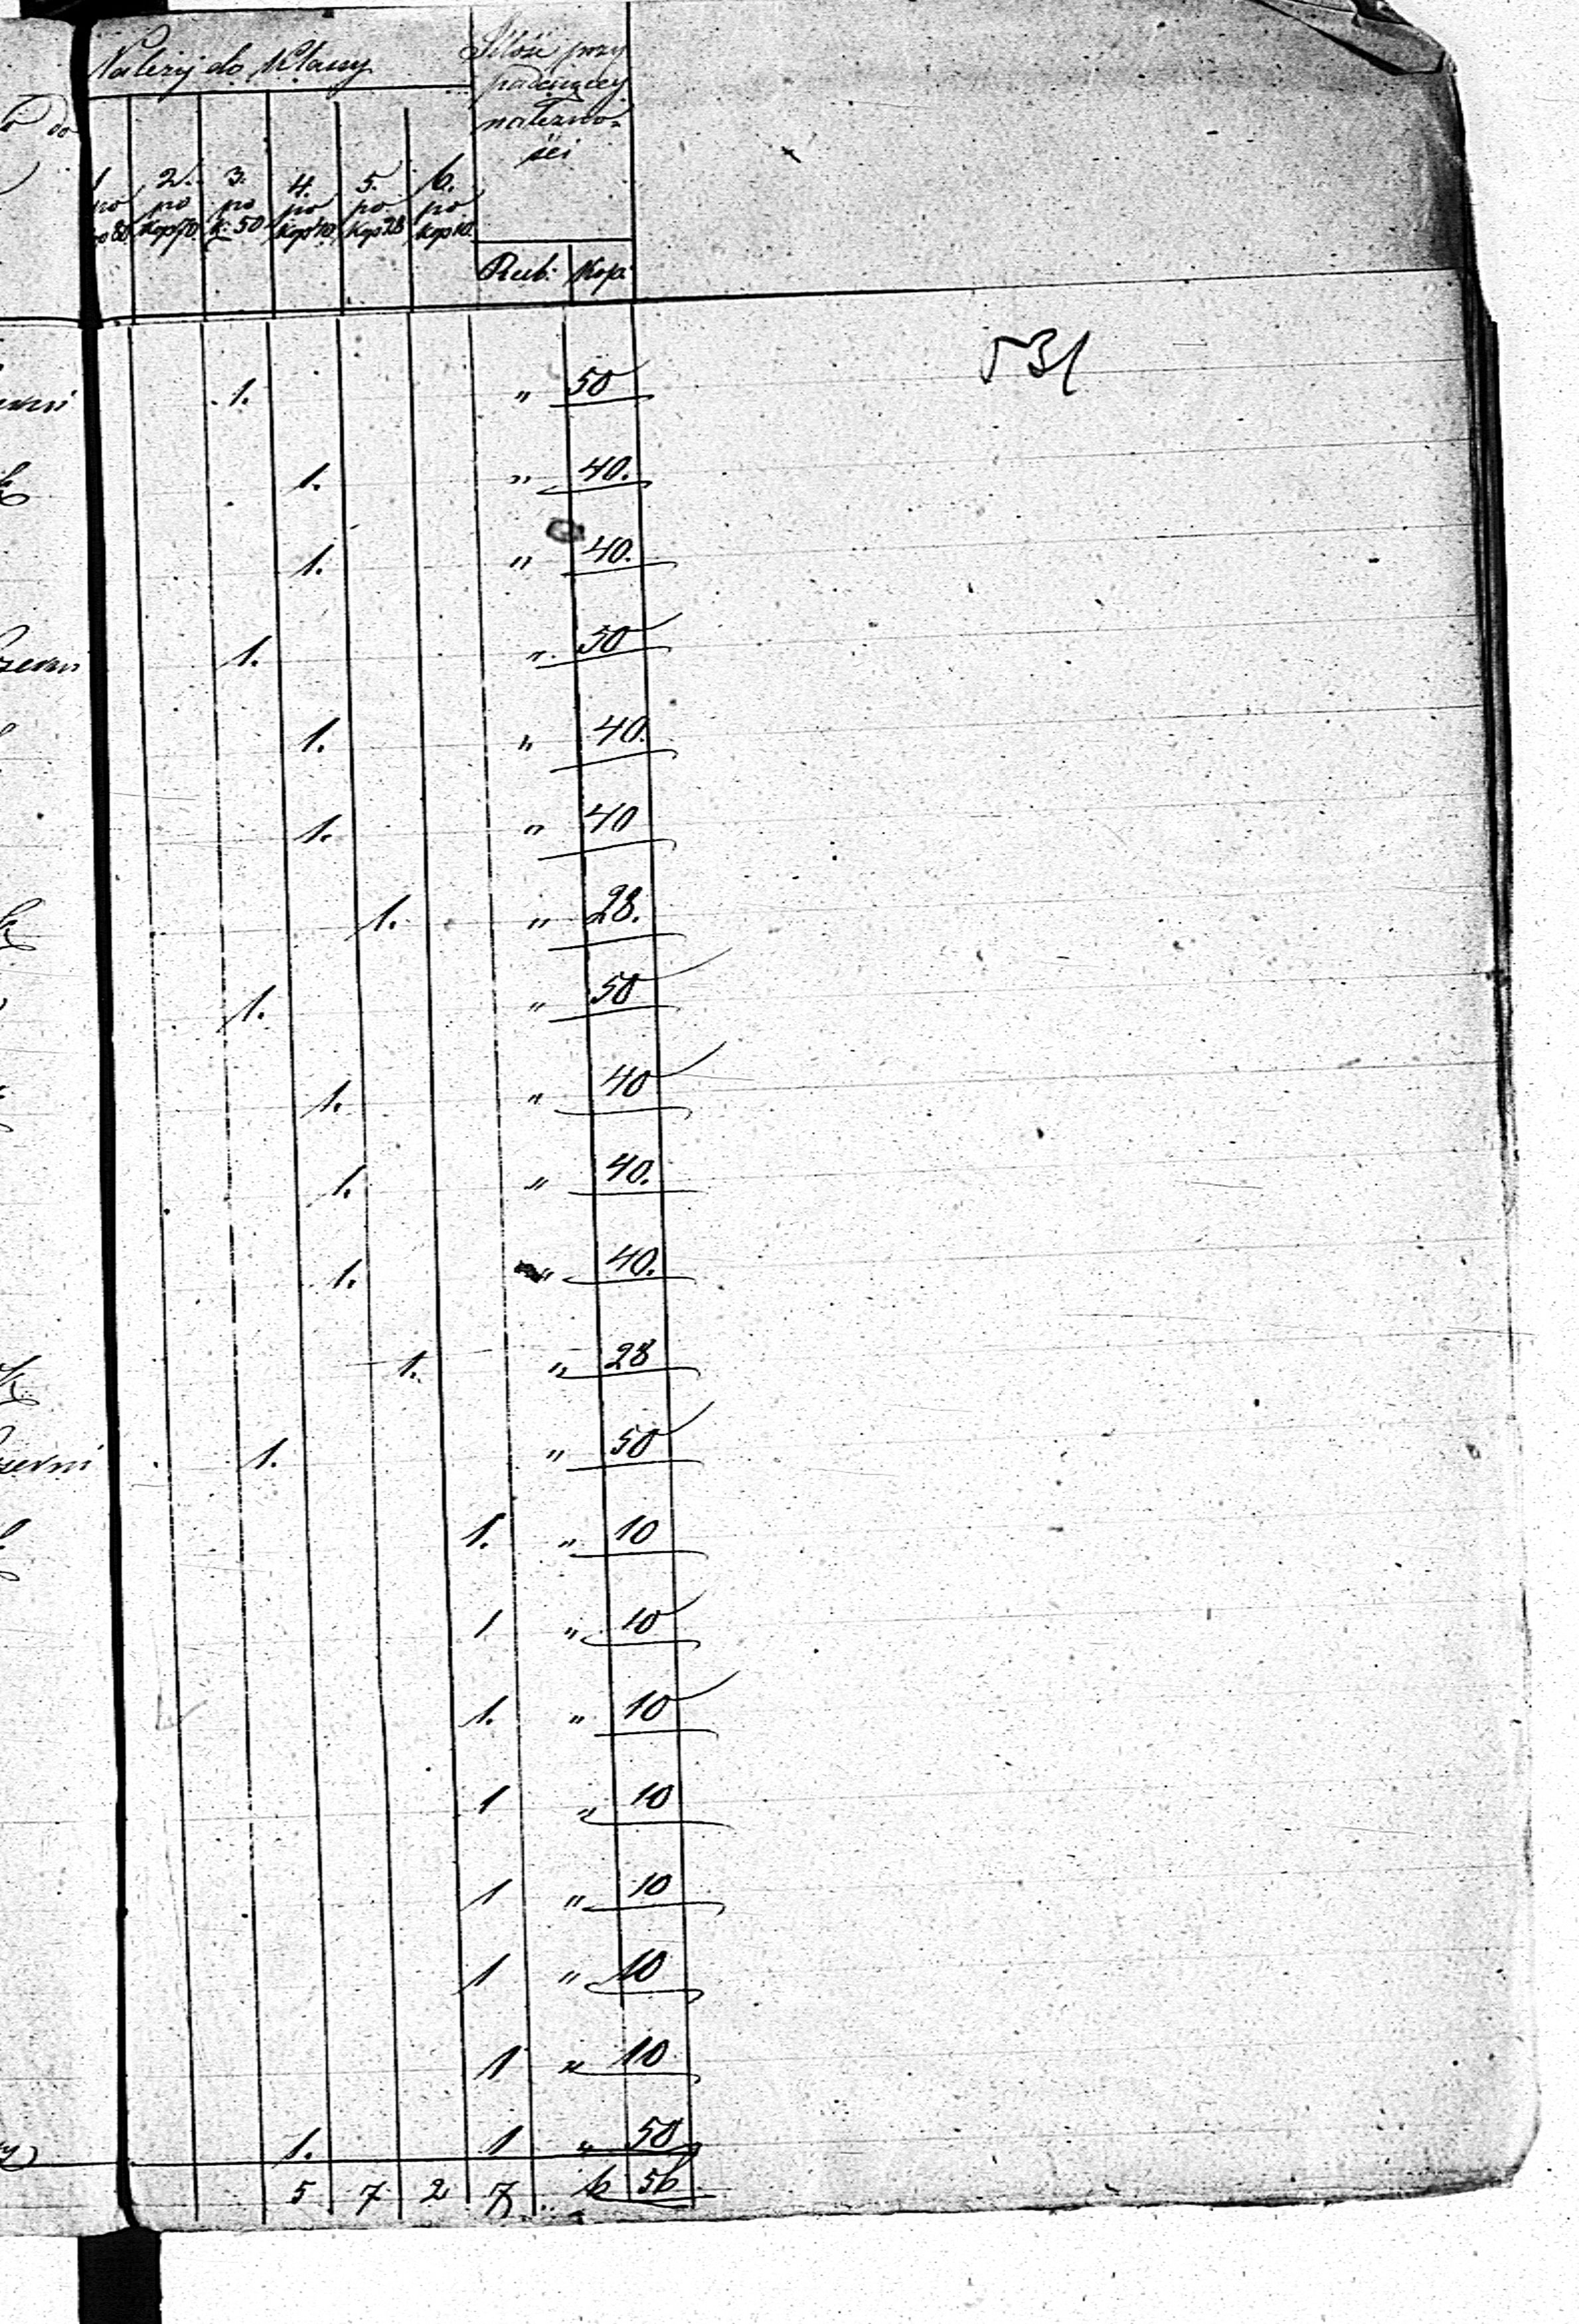 Należy do Klassy
Ilość przy
padaiącey
należno-
ści
do
1 2. 3. 4. 5. 6.
po po po po po po
80 Kop 70. k. 50 Kop 40. Kop 28 Kop 10.
Rub: Kop:
531
1. " 50
1. " 40.
1. " 40.
1. " 50
1. " 40.
1. " 40
1. " 28.
1. " 50
1. " 40
1. " 40.
1. " 40.
1. " 28
1. " 50
1. " 10
1 " 10
1. " 10
1 " 10
1 " 10
1 " 10
1 " 10
1. 1 " 50
5 7 2 7 6 56